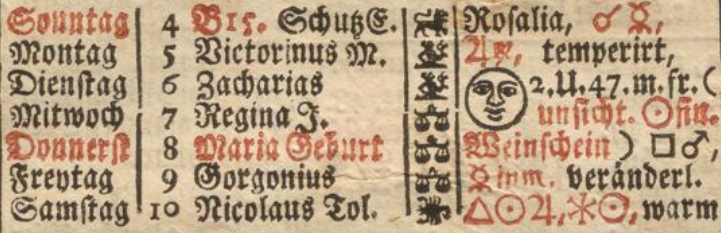 Sonntag 4 B15. Schutz E. Rosalia, ☌ ☿,
Montag 5 Victorinus M. ♃℞, temperirt,
Dienstag 6 Zacharias 2.U.47.m.fr. (
Mitwoch 7 Regina J. unsicht. ☉fin.
Donnerst 8 Maria Geburt Weinschein ) □♂,
Freytag 9 Gorgonius ☿ inm. veränderl.
Samstag 10 Nicolaus Tol. △☉♃, ⚹☉, warm